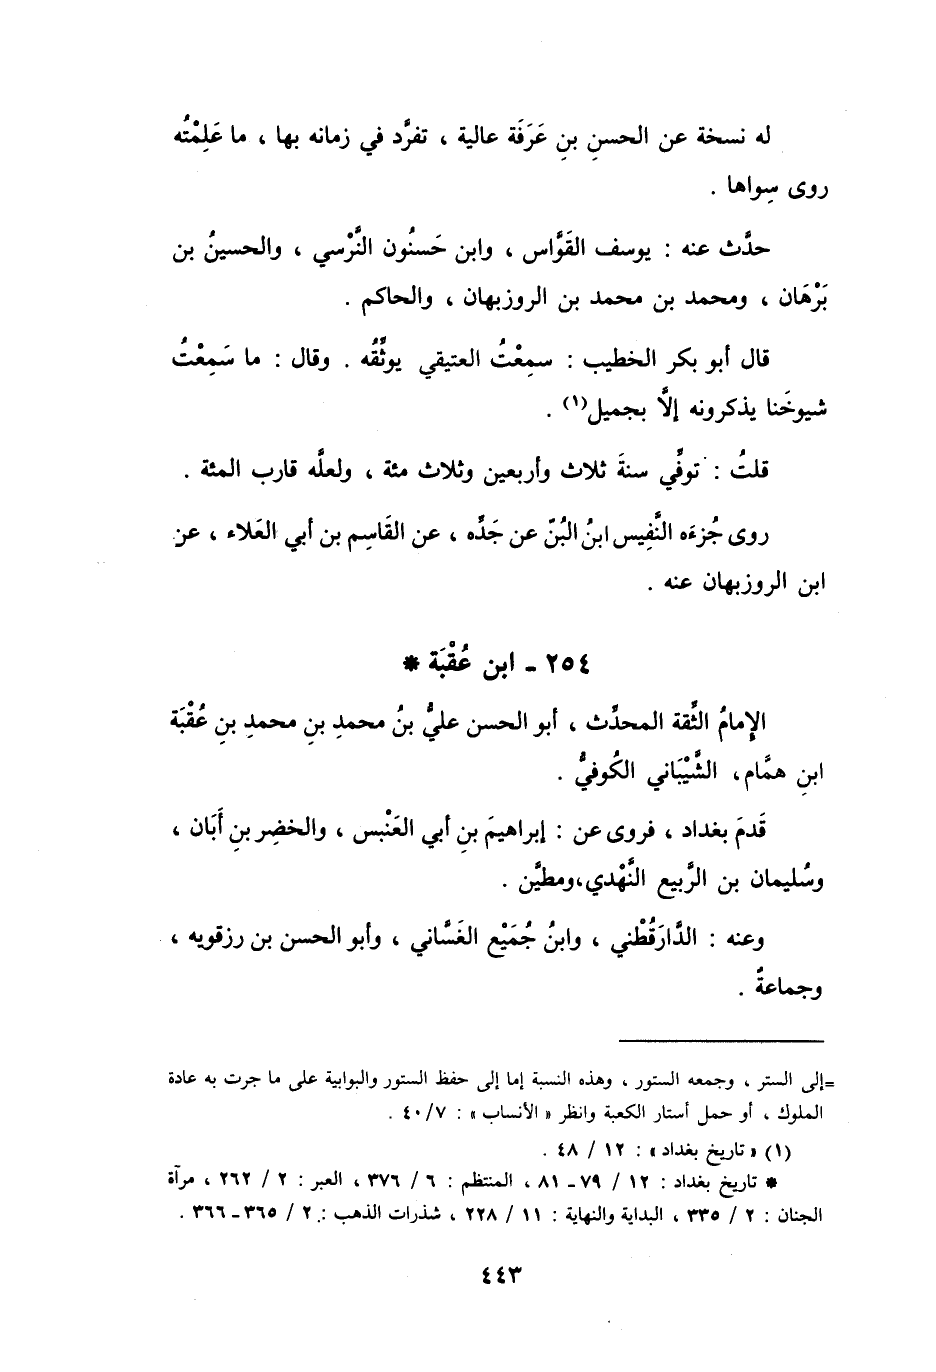 له نسخة عن الحسنِ بنِ عَرَفَة عالية ، تفرَّد في زمانه بها ، ما عَلِمْتُه
روى سِواها .
حدَّث عنه : يوسف القَوَّاس ، وابن حَسنُون النَّرْسي ، والحسينُ بن
بَرْهَان ، ومحمد بن محمد بن الروزبهان ، والحاكم .
قال أبو بكر الخطيب : سمِعْتُ العتيقي يوثِّقُه . وقال : ما سَمِعْتُ
شيوخَنا يذكرونه إلَّا بجميل(١) .
قلتُ : توفِّي سنةَ ثلاث وأربعين وثلاث مئة ، ولعلَّه قارب المئة .
روى جُزءَه النَّفِيس ابنُ البُنّ عن جَدِّه ، عن القَاسِم بن أبي العَلاء ، عن
ابن الروزبهان عنه .
٢٥٤ - ابن عُقْبَة *
الإمامُ الثِّقة المحدِّث ، أبو الحسن عليُّ بنُ محمدِ بنِ محمدِ بنِ عُقْبَة
ابنِ همَّام، الشَّيْبَاني الكُوفيُّ .
قَدمَ بغداد ، فروى عن : إبراهيمَ بنِ أبي العَنْبس ، والخضِر بنِ أَبَان ،
وسُليمان بن الرَّبيع النَّهْدي،ومطيَّن .
وعنه : الدَّارَقُطْني ، وابنُ جُمَيْع الغَسَّاني ، وأبو الحسن بن رزقويه ،
وجماعةٌ .
=إلى الستر ، وجمعه الستور ، وهذه النسبة إما إلى حفظ الستور والبوابية على ما جرت به عادة
الملوك ، أو حمل أستار الكعبة وانظر « الأنساب » : ٤٠/٧ .
(١) « تاريخ بغداد » : ١٢ / ٤٨ .
* تاريخ بغداد : ١٢ / ٧٩ - ٨١ ، المنتظم : ٦ / ٣٧٦ ، العبر : ٢ / ٢٦٢ ، مرآة
الجنان : ٢ / ٣٣٥ ، البداية والنهاية : ١١ / ٢٢٨ ، شذرات الذهب : ٢ / ٣٦٥ - ٣٦٦ .
٤٤٣